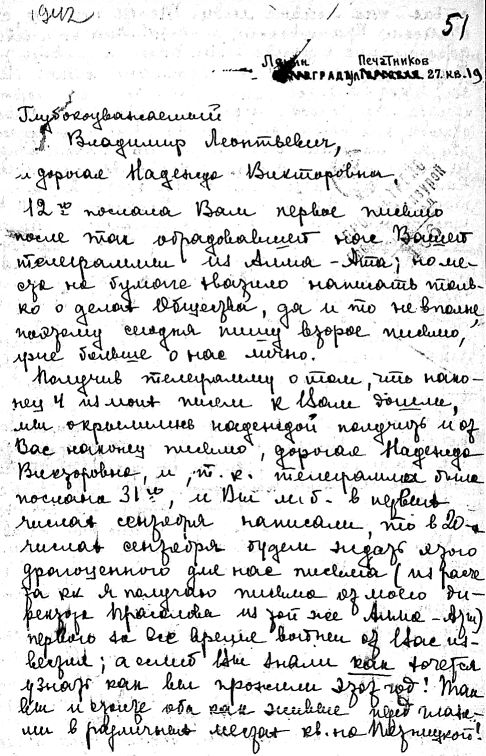 51
Ленинград ул Печатников 27. кв. 19
Глубокоуважаемый
Владимир Леонтьевич,
и дорогая Надежда Викторовна,
12го послала Вам первое письмо
после так обрадовавшей нас Вашей
телеграммы из Алма-Ата; но ме-
ста на бумаге хватило написать толь-
ко о делах Общества, да и то не вполне,
поэтому сегодня пишу второе письмо,
уже больше о нас лично.
Получив телеграмму о том, что нако-
нец 4 из моих писем к Вам дошли,
мы окрылились надеждой получить и от
Вас наконец письмо, дорогая Надежда
Викторовна, и, т.к. телеграмма была
послана 31го, и Вы м.б. в первых
числах сентября написали, то в 20-х
числах сентября будем ждать этого
драгоценного для нас письма (из расче-
та как я получаю письма от моего ди-
ректора из той же Алма-Аты)
первого за все время войны от Вас из-
вестия; а если б Вы знали как хочется
узнать как вы прожили этот год! Так
вы и стоите оба как живые перед глаза-
ми в различных местах кв. на